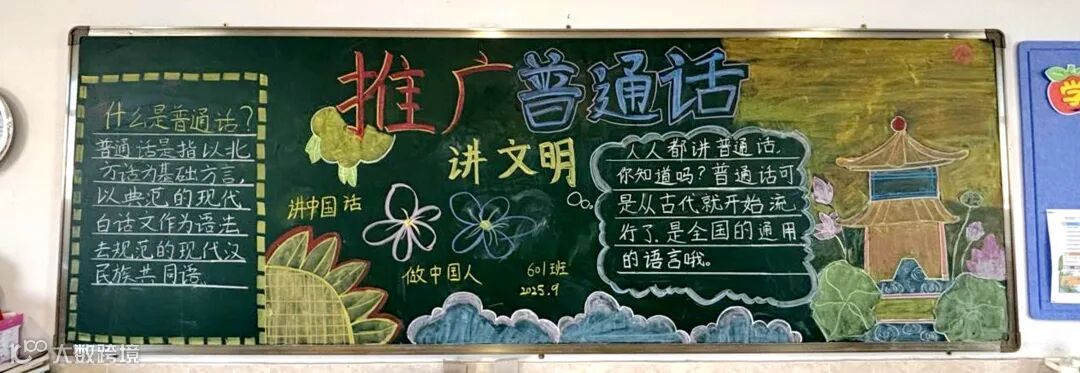 推广普通话
讲文明
什么是普通话?
普通话是指以北
方话为基础方言,
以典范的现代
白话文作为语法
去规范的现代汉
民族共同语.
讲中国话
做中国人
601班
2025.9
人人都讲普通话.
你知道吗?普通话可
是从古代就开始流
行了.是全国的通用
的语言哦。
学
大数跨境